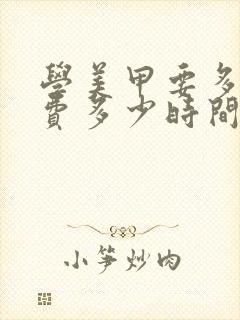 學美甲要多
費多少時間
小笋炒肉